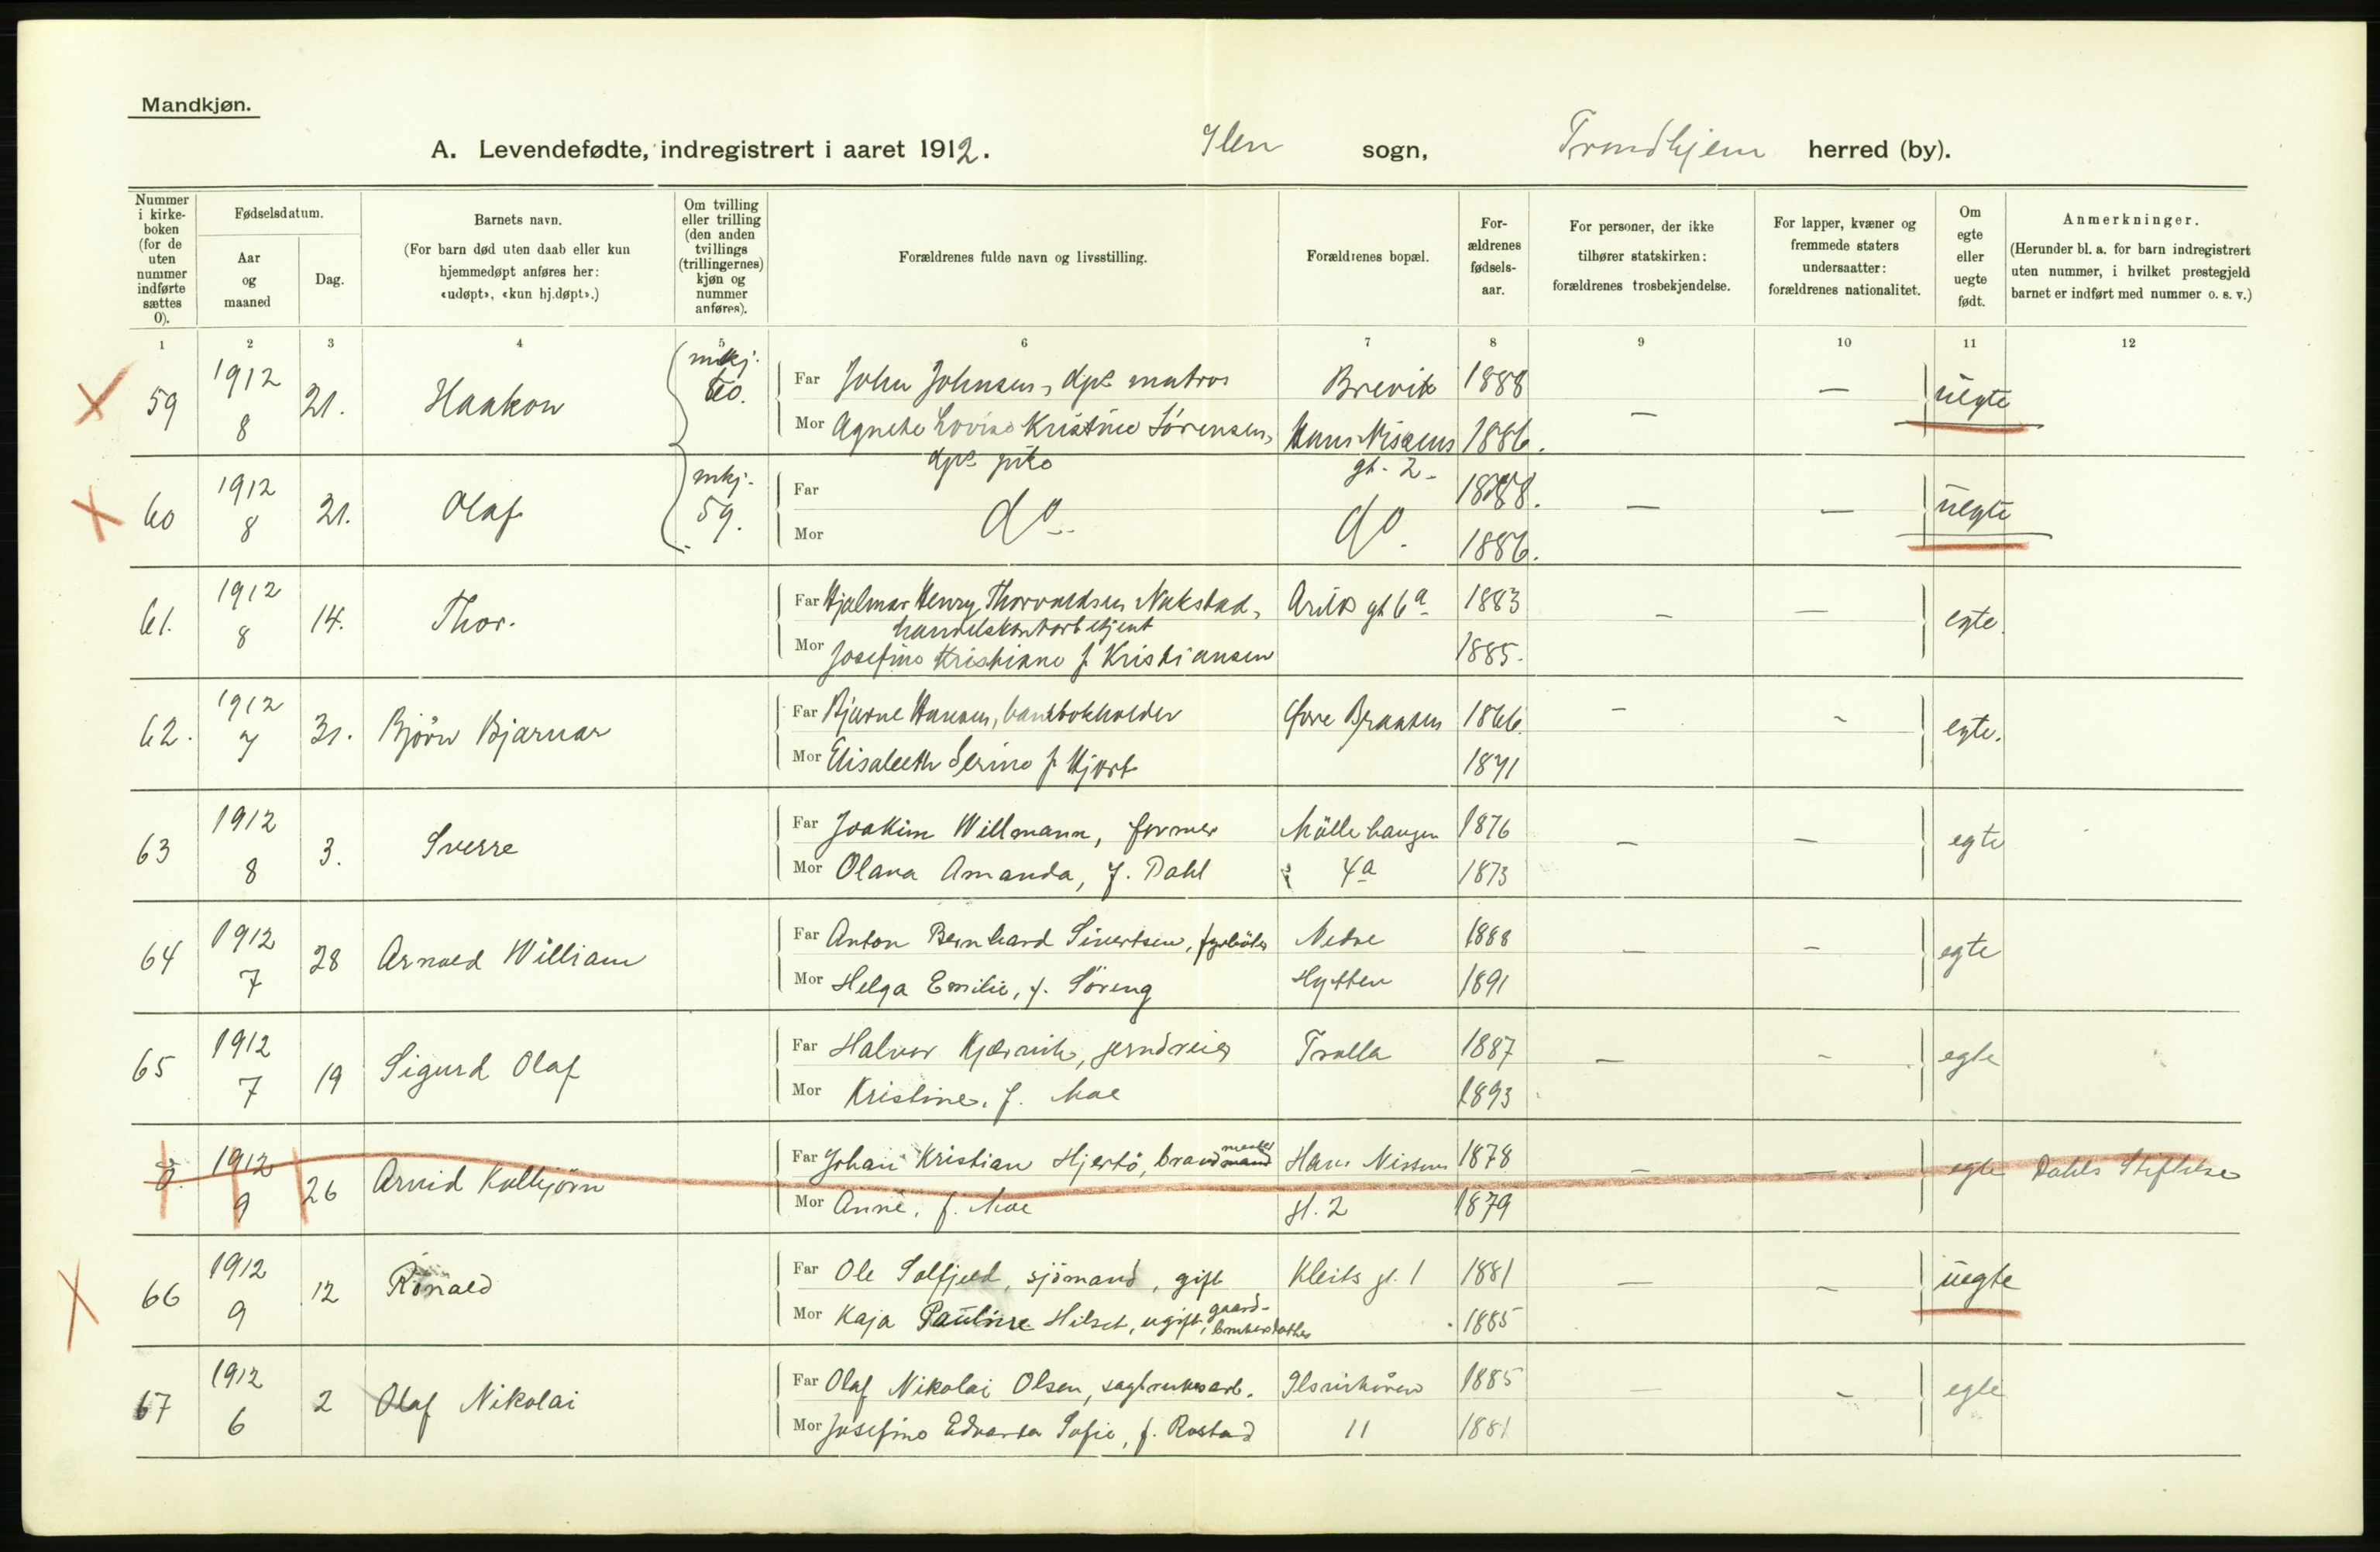 Mandkjøn.
A. Levendefødte, indregistrert i aaret 1912. Ilen sogn, Trondhjem herred (by).
Nummer i kirkeboken (for de uten nummer indførte sættes 0).
Fødselsdatum.
Aar og maaned
Dag.
Barnets navn.
(For barn død uten daab eller kun hjemmedøpt anføres her: «udøpt», «kun hj.døpt».)
Om tvilling eller trilling (den anden tvillings (trillingernes) kjøn og nummer anføres).
Forældrenes fulde navn og livsstilling.
Forældrenes bopæl.
For-ældrenes fødsels-aar.
For personer, der ikke tilhører statskirken: forældrenes trosbekjendelse.
For lapper, kvæner og fremmede staters undersaatter: forældrenes nationalitet.
Om egte eller uegte født.
Anmerkninger.
(Herunder bl. a. for barn indregistrert uten nummer, i hvilket prestegjeld barnet er indført med nummer o. s. v.)
1 2 3 4 5 6 7 8 9 10 11 12
59 1912 8 21. Haakon mkj. 60. Far John Johnsen, matros Brevik 1888 — — uegte
Mor Agnete Lovise Kristine Sørensen, pike Hans Nissens gt. 2 1886.
60 1912 8 21. Olaf mkj. 59. Far do do. 1888. — — uegte
Mor 1886.
61. 1912 8 14. Thor. Far Hjalmar Henry Thorvaldsen Nakstad, handelskontorbetjent Arilds gt 6a 1883 — — egte.
Mor Josefine Kristiane f. Kristiansen 1885.
62. 1912 7 31. Bjørn Bjarnar Far Bjarne Hansen, bankbokholder øvre Braaten 1866. — — egte.
Mor Elisabeth Serine f. Hjort 1871
63 1912 8 3. Sverre Far Joakim Willmann, former Möllebaugen 1876 — — egte
Mor Olava Amanda, f. Dahl 4a 1873
64 1912 7 28 Arnold William Far Anton Bernhard Sivertsen, fyrböter Nedre 1888 — — egte
Mor Helga Emilie, f. Söreng Hytten 1891
65 1912 7 19 Sigurd Olaf Far Halvor Kjærvik, jerndreier Trolla 1887 — — egte
Mor Kristine, f. Moe 1893
0. 1912 9 26 Arvid Kolbjörn Far Johan Kristian Hjertö, brand Hans Nissens 1878 — — egte Dahls Stiftelse
Mor Anne, f. Moe gt. 2 1879
66 1912 9 12 Ronald Far Ole Solfjeld, sjömand, gift Kleists gt. 1 1881 — — uegte
Mor Kaja Pauline Hilset, ugift, gaardbrukerdatter 1885
67 1912 6 2 Olaf Nikolai Far Olaf Nikolai Olsen, sagbruksarb. Ilsvikören 1885 — — egte
Mor Josefine Edvarda Sofie, f. Rostad 11 1881